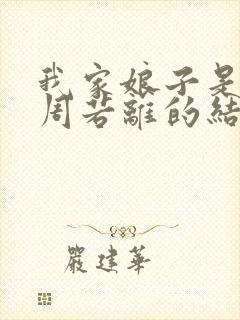 我家娘子是
周若離的結
嚴建華